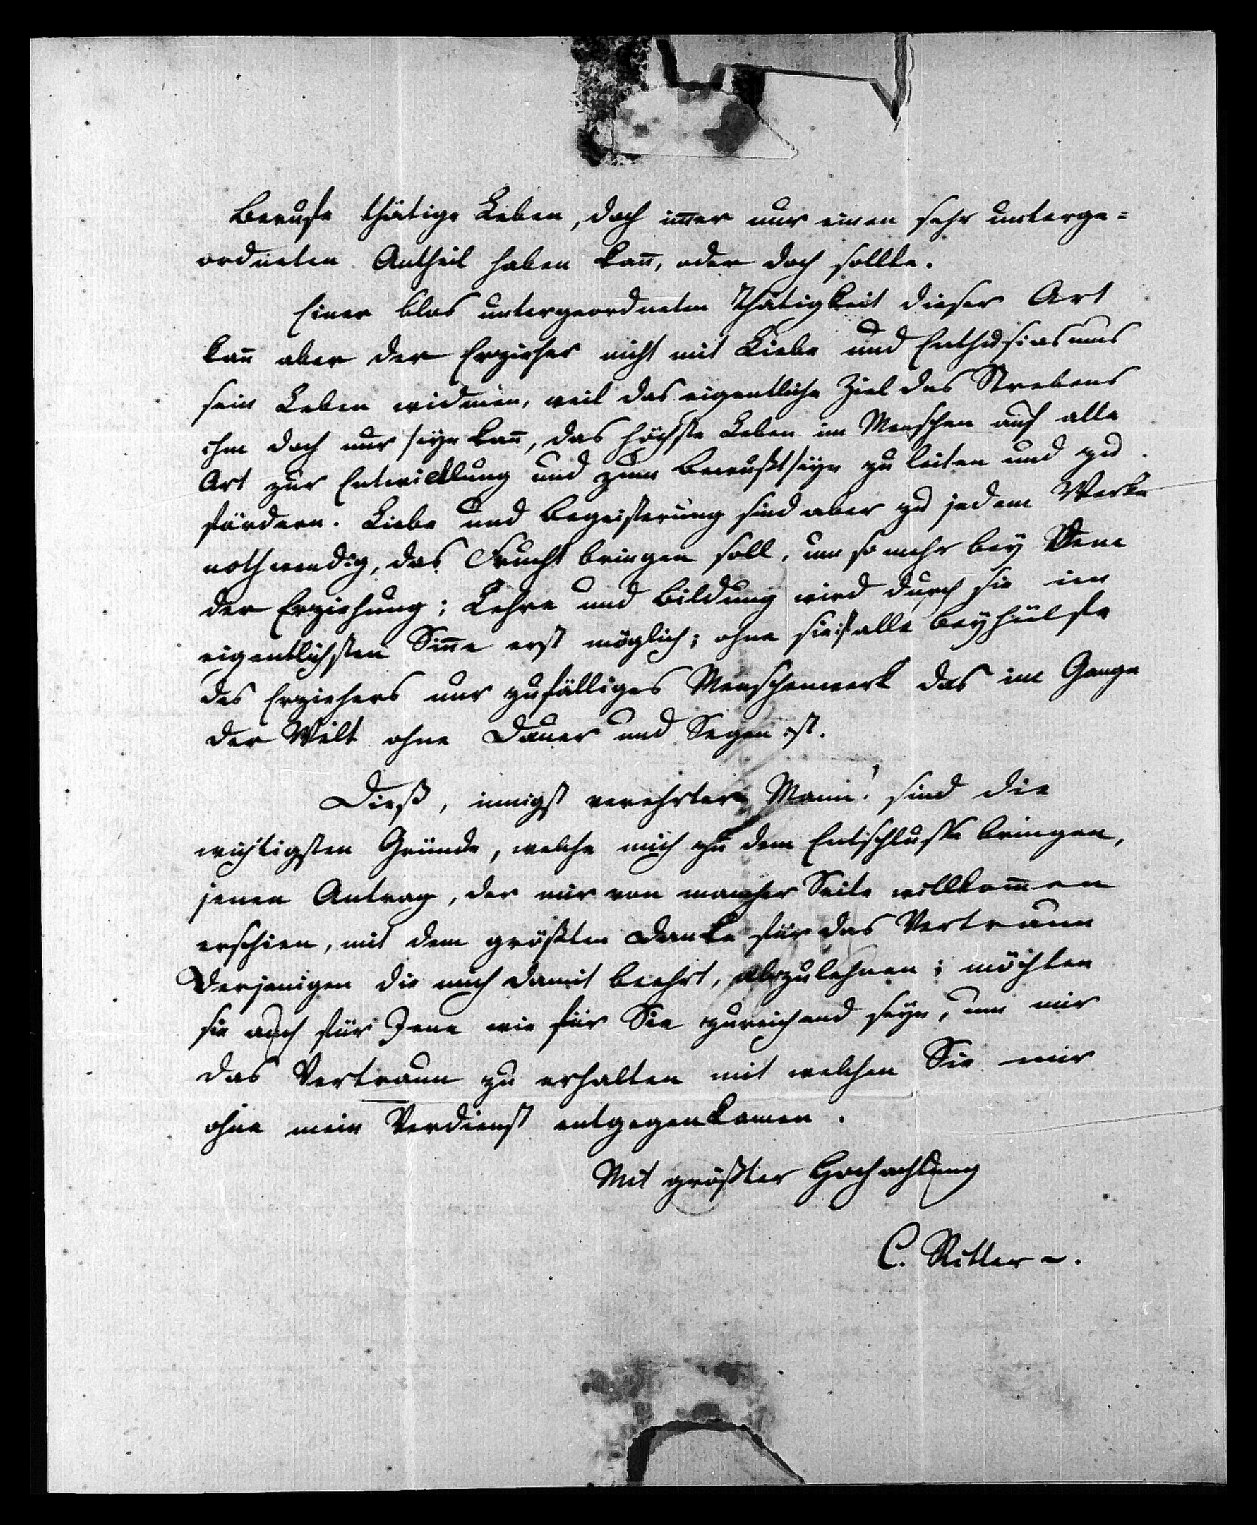 Berufe thätige Leben, doch im̄er nur einen sehr unterge=
ordneten Antheil haben kan̄, oder doch sollte.
Einer blos untergeordneten Thätigkeit dieser Art
kan̄ aber der Erzieher nicht mit Liebe und Enthusiasmus
sein Leben widmen, weil das eigentliche Ziel des Strebens
ihm doch nur seyn kan̄, das höchste Leben im Menschen auf alle
Art zur Entwicklung und zum Bewußtseyn zu leiten und zu
fördern. Liebe und Begeisterung sind aber zu jedem Werke
nothwendig, das Frucht bringen soll, um so mehr bey Dem
der Erziehung; Lehre und Bildung wird durch sie im
eigentlichsten Sin̄e erst möglich; ohne sie ist alle Beyhülfe
des Erziehers nur zufälliges Menschenwerk das im Gange
der Welt ohne Dauer und Segen ist.
Dieß, innigst verehrter Mann! sind die
wichtigsten Gründe, welche mich zu dem Entschlusse bringen,
jenen Antrag, der mir von mancher Seite willkom̄en
erschien, mit dem größten Danke für das Vertrauen
Derjenigen die mich damit beehrt, abzulehnen; möchten
sie auch für Jene wie für Sie zureichend seyn, um mir
das Vertrauen zu erhalten mit welchen Sie mir
ohne mein Verdienst entgegenkamen.
Mit größter Hochachtung
C. Ritter